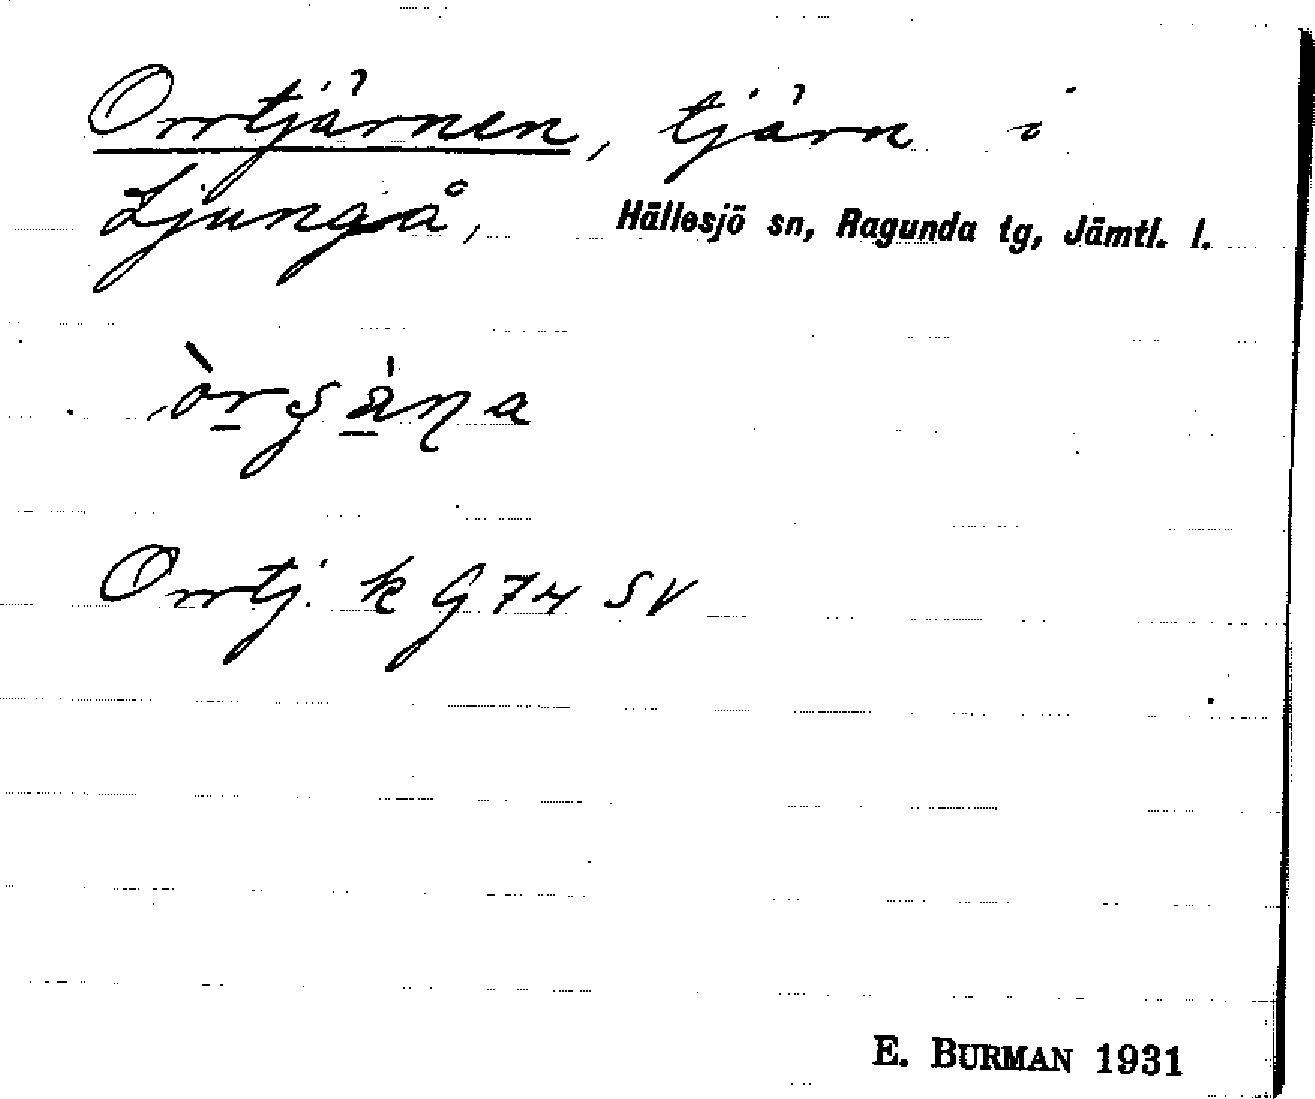 Orrtjärnen, tjärn i
Ljungå, Hällesjö sn, Ragunda tg, Jämtl. l.
Orrtj. k G 74 SV
E. BURMAN 1931